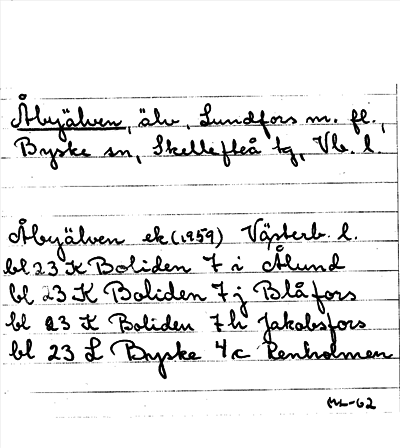 Åbyälven, älv, Lundfors m. fl.,
Byske sn, Skellefteå tg, Vb. l.
Åbyälven ek (1959) Västerb. l.
bl 23 K Boliden 7 i Ålund
bl 23 K Boliden 7 j Blåfors
bl 23 K Boliden 7 h Jakobsfors
bl 23 L Byske 4 c Renholmen
ML-62